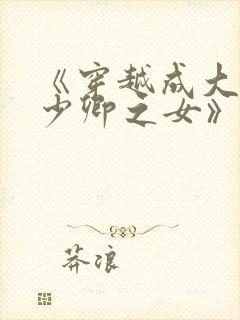 《穿越成大
少卿之女》
莽浪